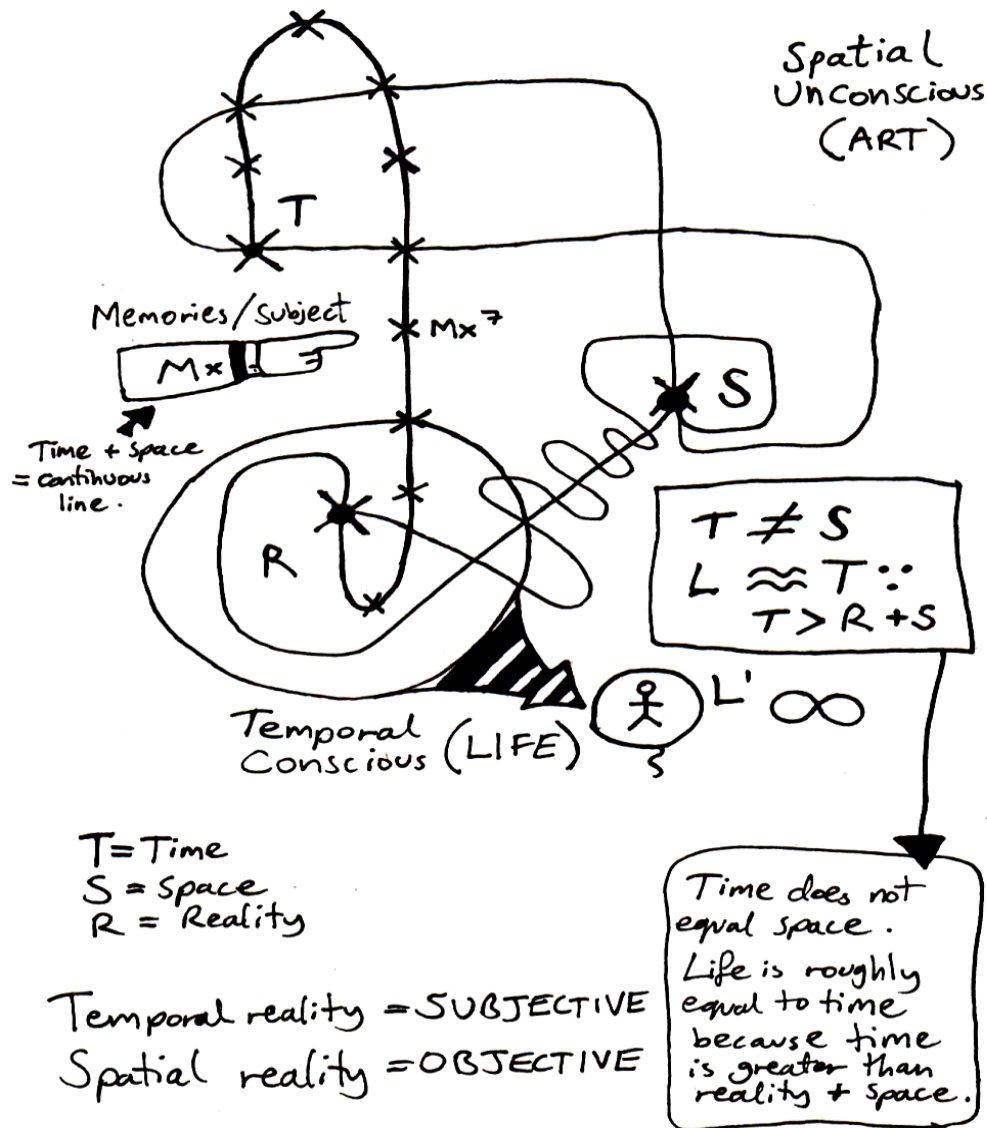 Spatial
Unconscious
(ART)
T
Memories/Subject
Mx
Mx⁷
Time + Space
= continuous
line.
S
R
T ≠ S
L ≈ T ∵
T > R + S
L' ∞
Temporal
Conscious (LIFE)
T = Time
S = Space
R = Reality
Temporal reality = SUBJECTIVE
Spatial reality = OBJECTIVE
Time does not
equal space.
Life is roughly
equal to time
because time
is greater than
reality + space.